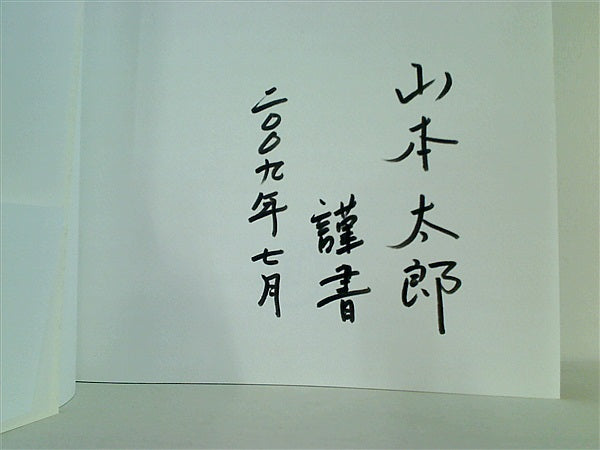 山本太郎
謹書
二〇〇九年七月